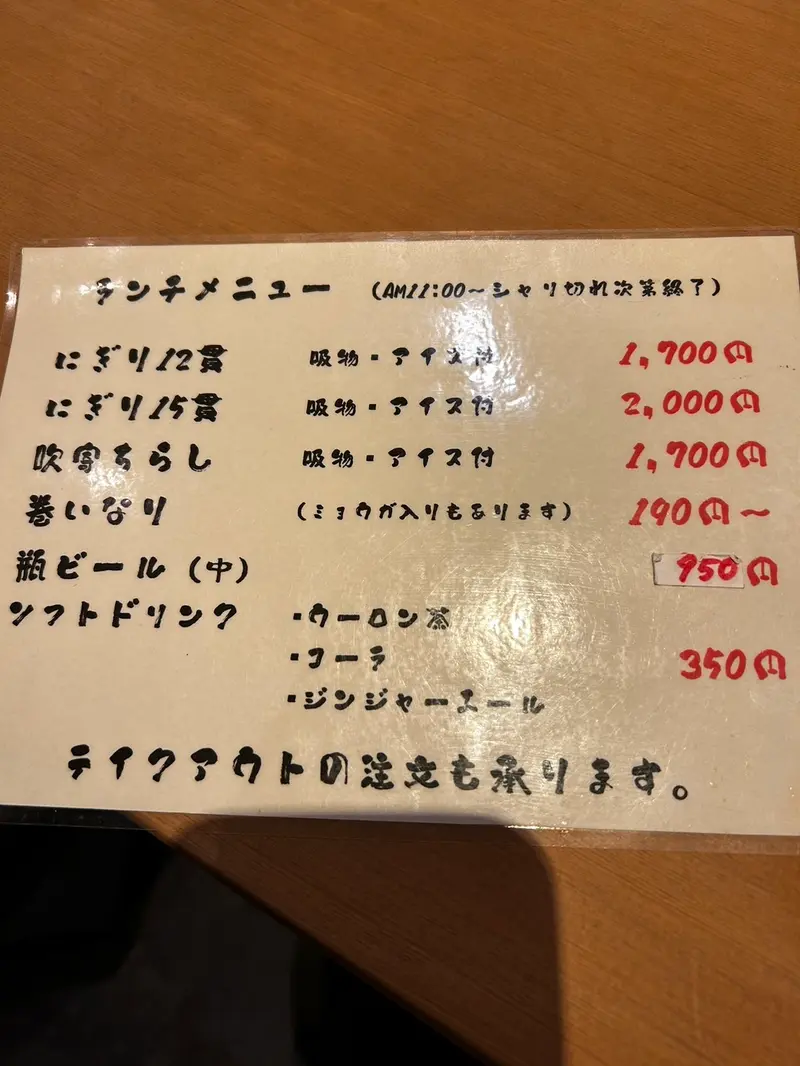 ランチメニュー (AM11:00〜シャリ切れ次第終了)
にぎり12貫 吸物・アイス付 1,700円
にぎり15貫 吸物・アイス付 2,000円
吹寄ちらし 吸物・アイス付 1,700円
巻いなり (ミョウガ入りもあります) 190円〜
瓶ビール (中) 950円
ソフトドリンク ・ウーロン茶
・コーラ 350円
・ジンジャーエール
テイクアウトの注文も承ります。